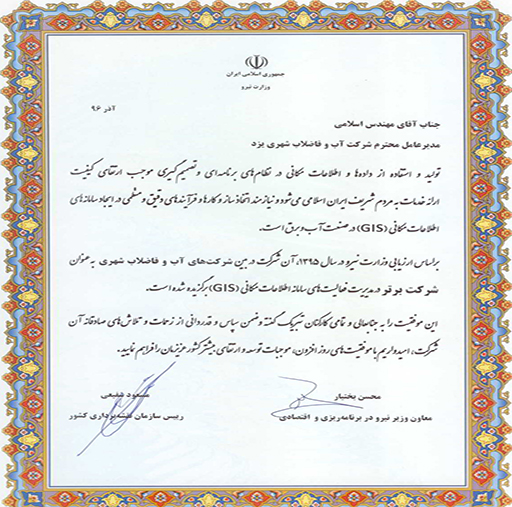 جمهوری اسلامی ایران
وزارت نیرو
آذر ۹۶
جناب آقای مهندس اسلامی
مدیرعامل محترم شرکت آب و فاضلاب شهری یزد
تولید و استفاده از داده‌ها و اطلاعات مکانی در نظام‌های برنامه‌ای و تصمیم گیری موجب ارتقای کیفیت
ارائه خدمات به مردم شریف ایران اسلامی می‌شود و نیازمند اتخاذ ساز و کارها و فرآیندهای دقیق و منطقی در ایجاد سامانه‌های
اطلاعات مکانی (GIS) در صنعت آب و برق است.
براساس ارزیابی وزارت نیرو در سال ۱۳۹۵، آن شرکت در بین شرکت‌های آب و فاضلاب شهری به عنوان
شرکت برتر در مدیریت فعالیت‌های سامانه اطلاعات مکانی (GIS) برگزیده شده است.
این موفقیت را به جنابعالی و تمامی کارکنان تبریک گفته و ضمن سپاس و قدردانی از زحمات و تلاش‌های صادقانه آن
شرکت، امیدواریم با موفقیت‌های روز افزون، موجبات توسعه و ارتقای بیشتر کشور عزیزمان را فراهم نمایید.
محسن بختیار
معاون وزیر نیرو در برنامه‌ریزی و اقتصادی
مسعود شفیعی
رییس سازمان نقشه‌برداری کشور